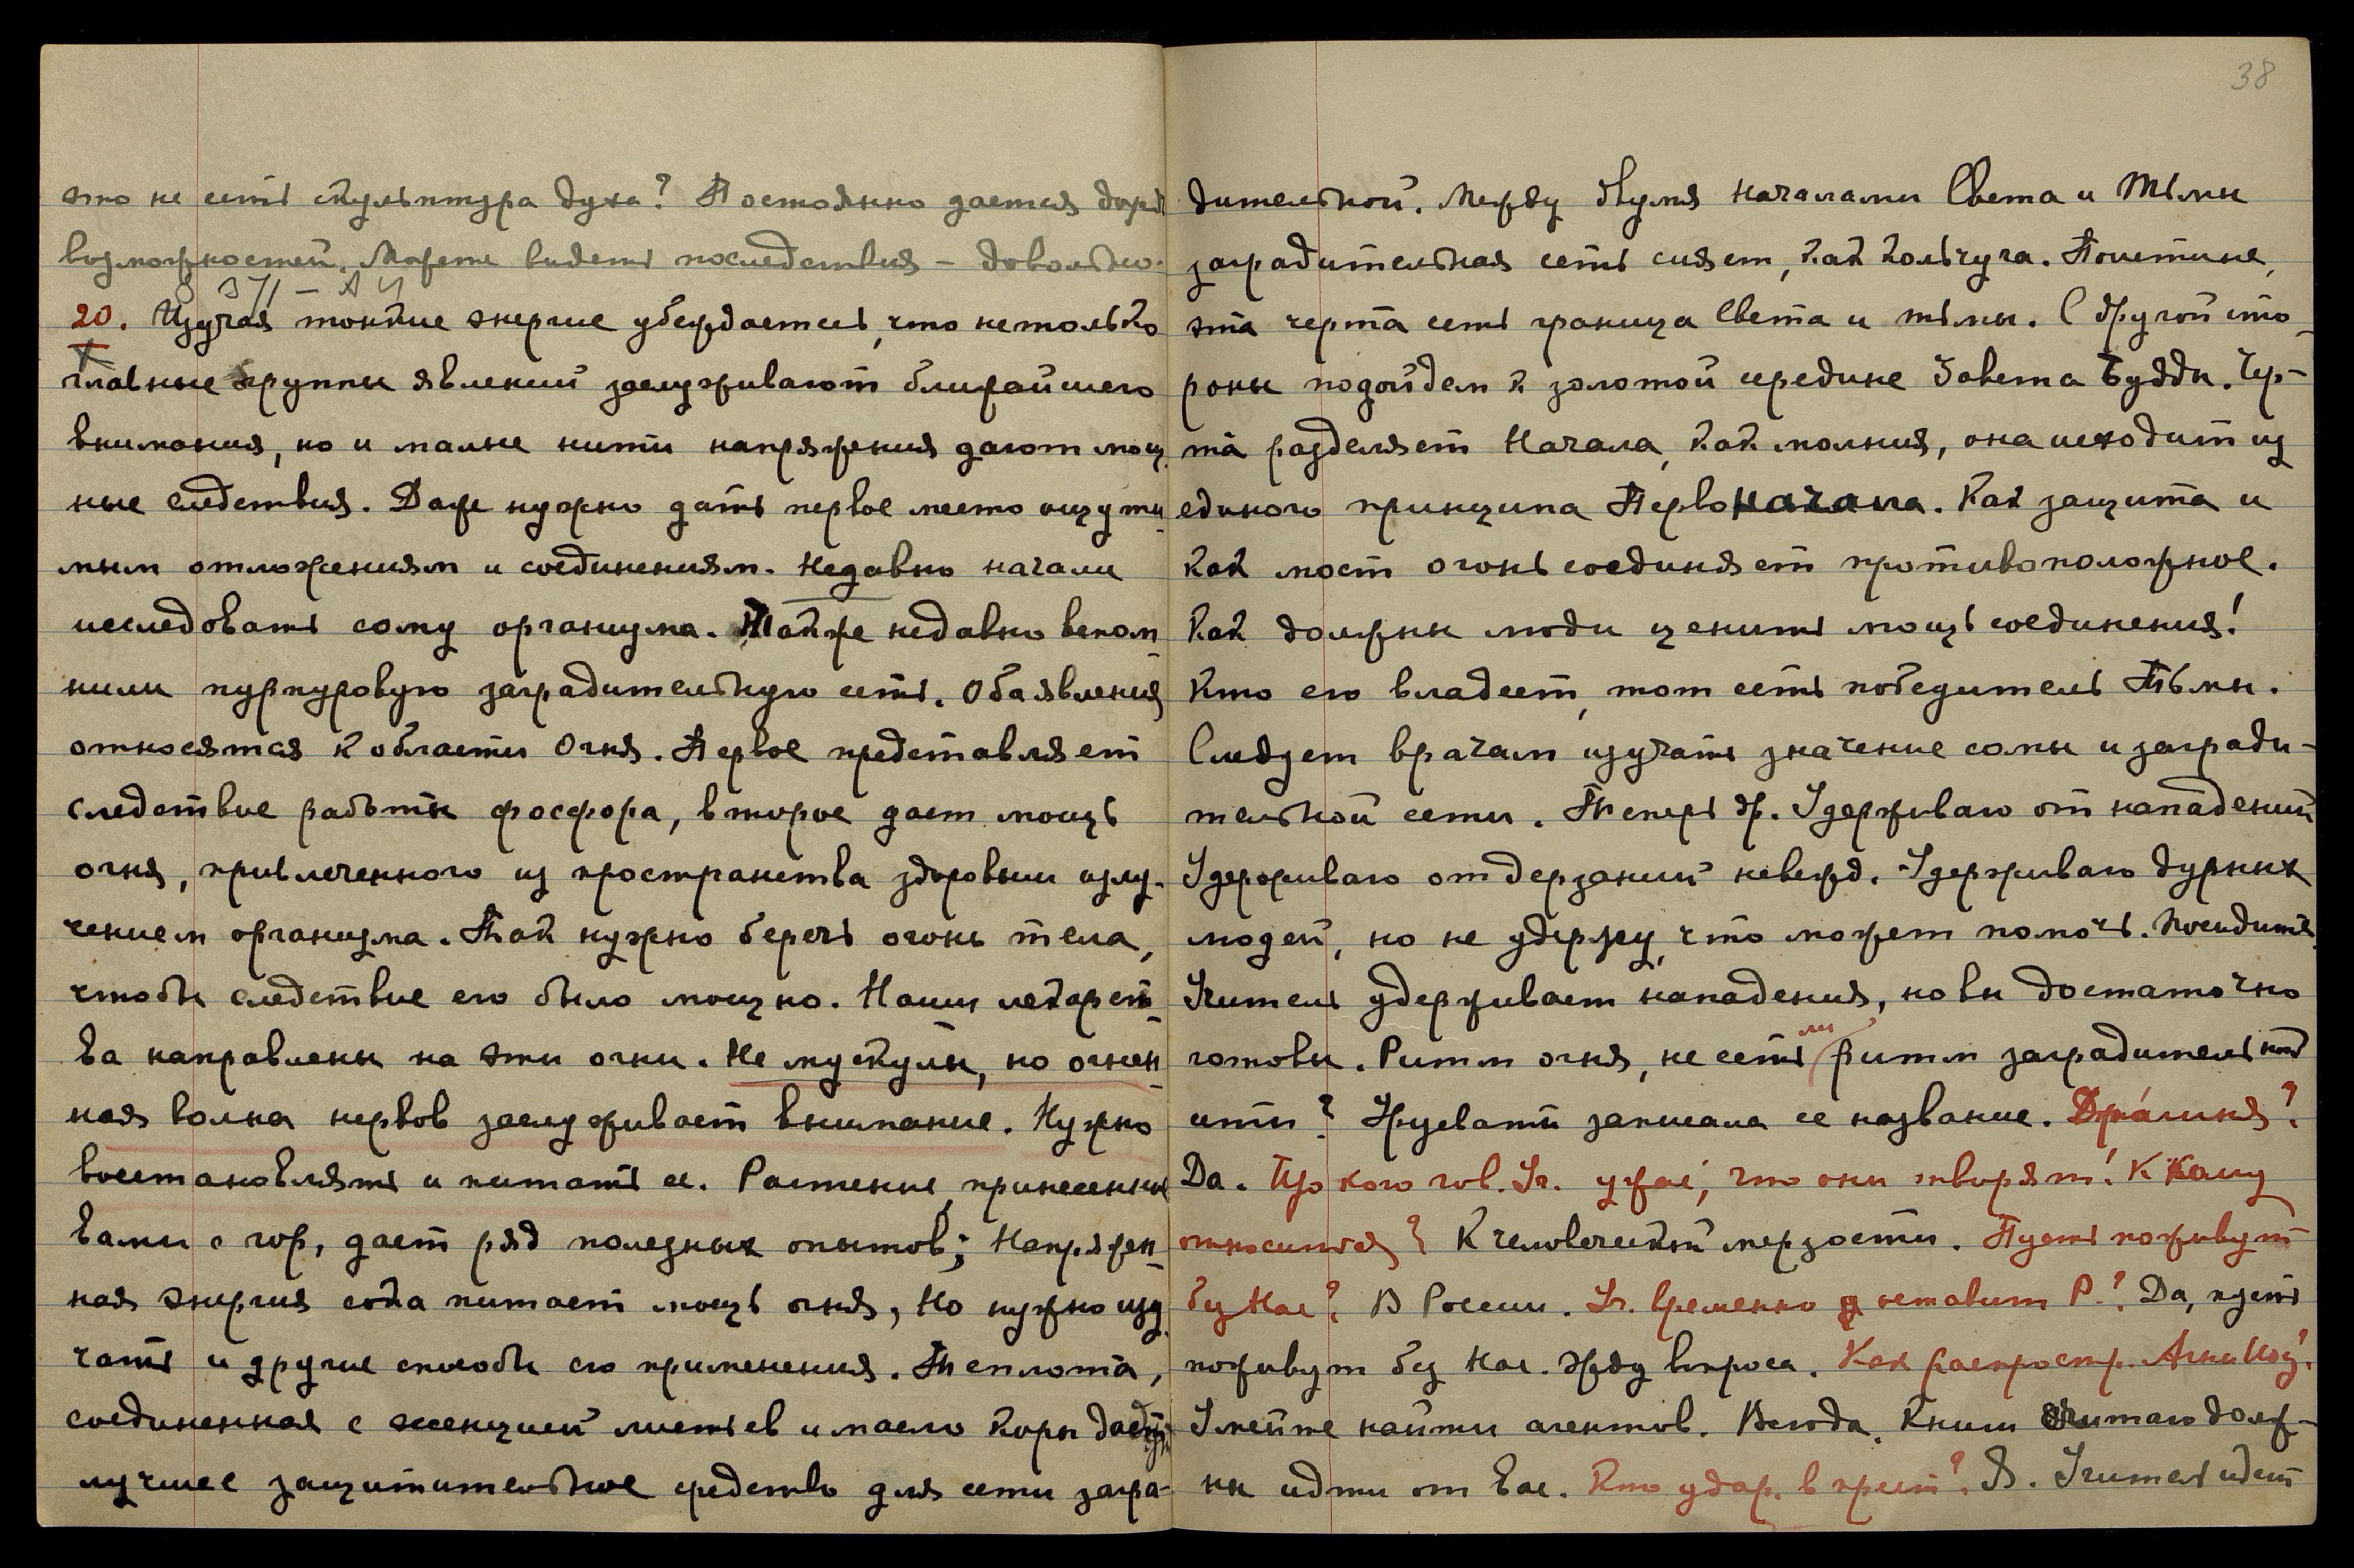 это не есть скульптура духа? Постоянно дается дар
возможностей. Можете видеть последствия – довольно.
20. Изучая тонкие энергие убеждаетесь, что нетолько
главные группы явлений заслуживают ближайшего
внимания, но и малые нити напряжения дают мощ
ные следствия. Даже нужно дать первое место ощути
мым отложениям и соединениям. Недавно начали
исследовать сому организма. Также недавно вспом
нили пурпуровую заградительную сеть. Оба явления
относятся к области Огня. Первое представляет
следствие работы фосфора, второе дает мощь
огня, привлеченного из пространства здоровым излу-
чением организма. Так нужно беречь огонь тела,
чтобы следствие его было мощно. Наши лекарст
ва направлены на эти огни. Не мускулы, но огнен
ная волна нервов заслуживает внимание. Нужно
восстановлять и питать ее. Растение, принесенные
вами с гор, дает ряд полезных опытов; Напряжен
ная энергия сока питает мощь огня, Но нужно изу
чать и другие способы его применения. Теплота,
соединенная с эссенцией листьев и масло коры дает
лучшее защитительное средство для сети загра-
38
дительной. Между двумя началами Света и Тьмы
заградительная сеть сияет, как кольчуга. Поистине,
эта черта есть граница Света и тьмы. С другой сто
роны подойдем к золотой средине Завета Будды. Чер-
та разделяет Начала, как молния, она исходит из
единого принципа Первоначала. Как защита и
как мост огонь соединяет противоположное.
Как должны люди ценить мощь соединения!
Кто его владеет, тот есть победитель Тьмы.
Следует врачам изучать значение сомы и загради-
тельной сети. Теперь др. Удерживаю от нападений
Удерживаю от дерзаний невежд. Удерживаю дурных
людей, но не удержу, что может помочь. Посидите
Учитель удерживает нападения, но вы достаточно
готовы. Ритм огня, не есть ли ритм заградительной
сети? Урусвати записала ее название. Дра́гшня?
Да. Про кого гов. Уч. ужас, что они творят! К Кому
относится? К человеческой мерзости. Пусть поживут
без Нас? В России. Уч. временно оставит Р.? Да, пусть
поживут без Нас. Жду вопроса. Как распростр. Агни Йогу.
Умейте найти агентов. Всегда. Книги Считаю долж-
ны идти от вас. Кто удар. в крест? Я. Учитель идет